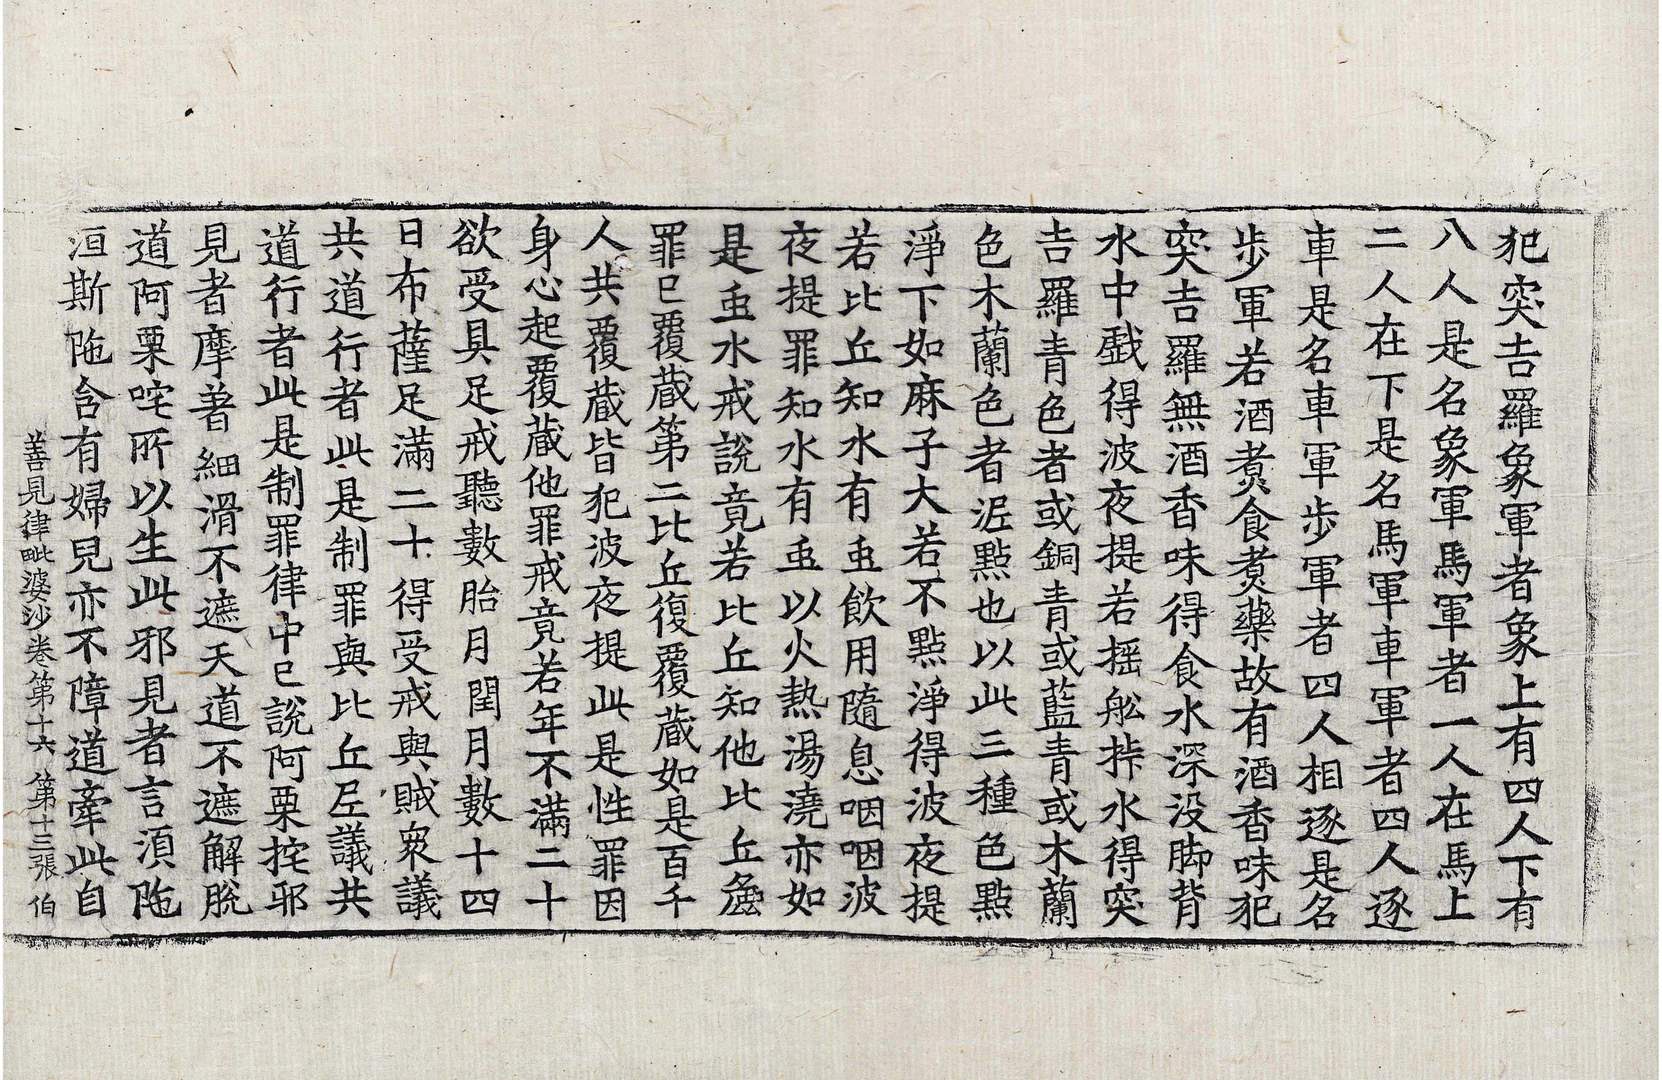 犯突吉羅象軍者象上有四人下有
八人是名象軍馬軍者一人在馬上
二人在下是名馬軍車軍者四人逐
車是名車軍步軍者四人相逐是名
步軍若酒煑食煑藥故有酒香味犯
突吉羅無酒香味得食水深没脚背
水中戱得波夜提若摇舩桙水得突
吉羅青色者或銅青或藍青或木蘭
色木蘭色者泥點也以此三種色點
淨下如麻子大若不點淨得波夜提
若比丘知水有虫飮用隨息咽咽波
夜提罪知水有虫以火熱湯澆亦如
是虫水戒說竟若比丘知他比丘麁
罪已覆蔵第二比丘復覆蔵如是百千
人共覆蔵皆犯波夜提此是性罪因
身心起覆蔵他罪戒竟若年不滿二十
欲受具足戒聽數胎月閏月數十四
日布薩足滿二十得受戒與賊衆議
共道行者此是制罪與比丘尼議共
道行者此是制罪律中已說阿栗挓邪
見者摩著細滑不遮天道不遮解脫
道阿栗咤所以生此邪見者言湏陁
洹斯陁含有婦兒亦不障道牽此自
善見律毗婆沙卷第十六 第十三張 伯